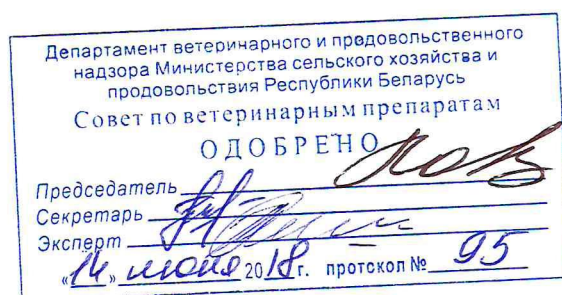 Департамент ветеринарного и продовольственного
надзора Министерства сельского хозяйства и
продовольствия Республики Беларусь
Совет по ветеринарным препаратам
ОДОБРЕНО
Председатель
Секретарь
Эксперт
«14» июня 2018г. протокол № 95